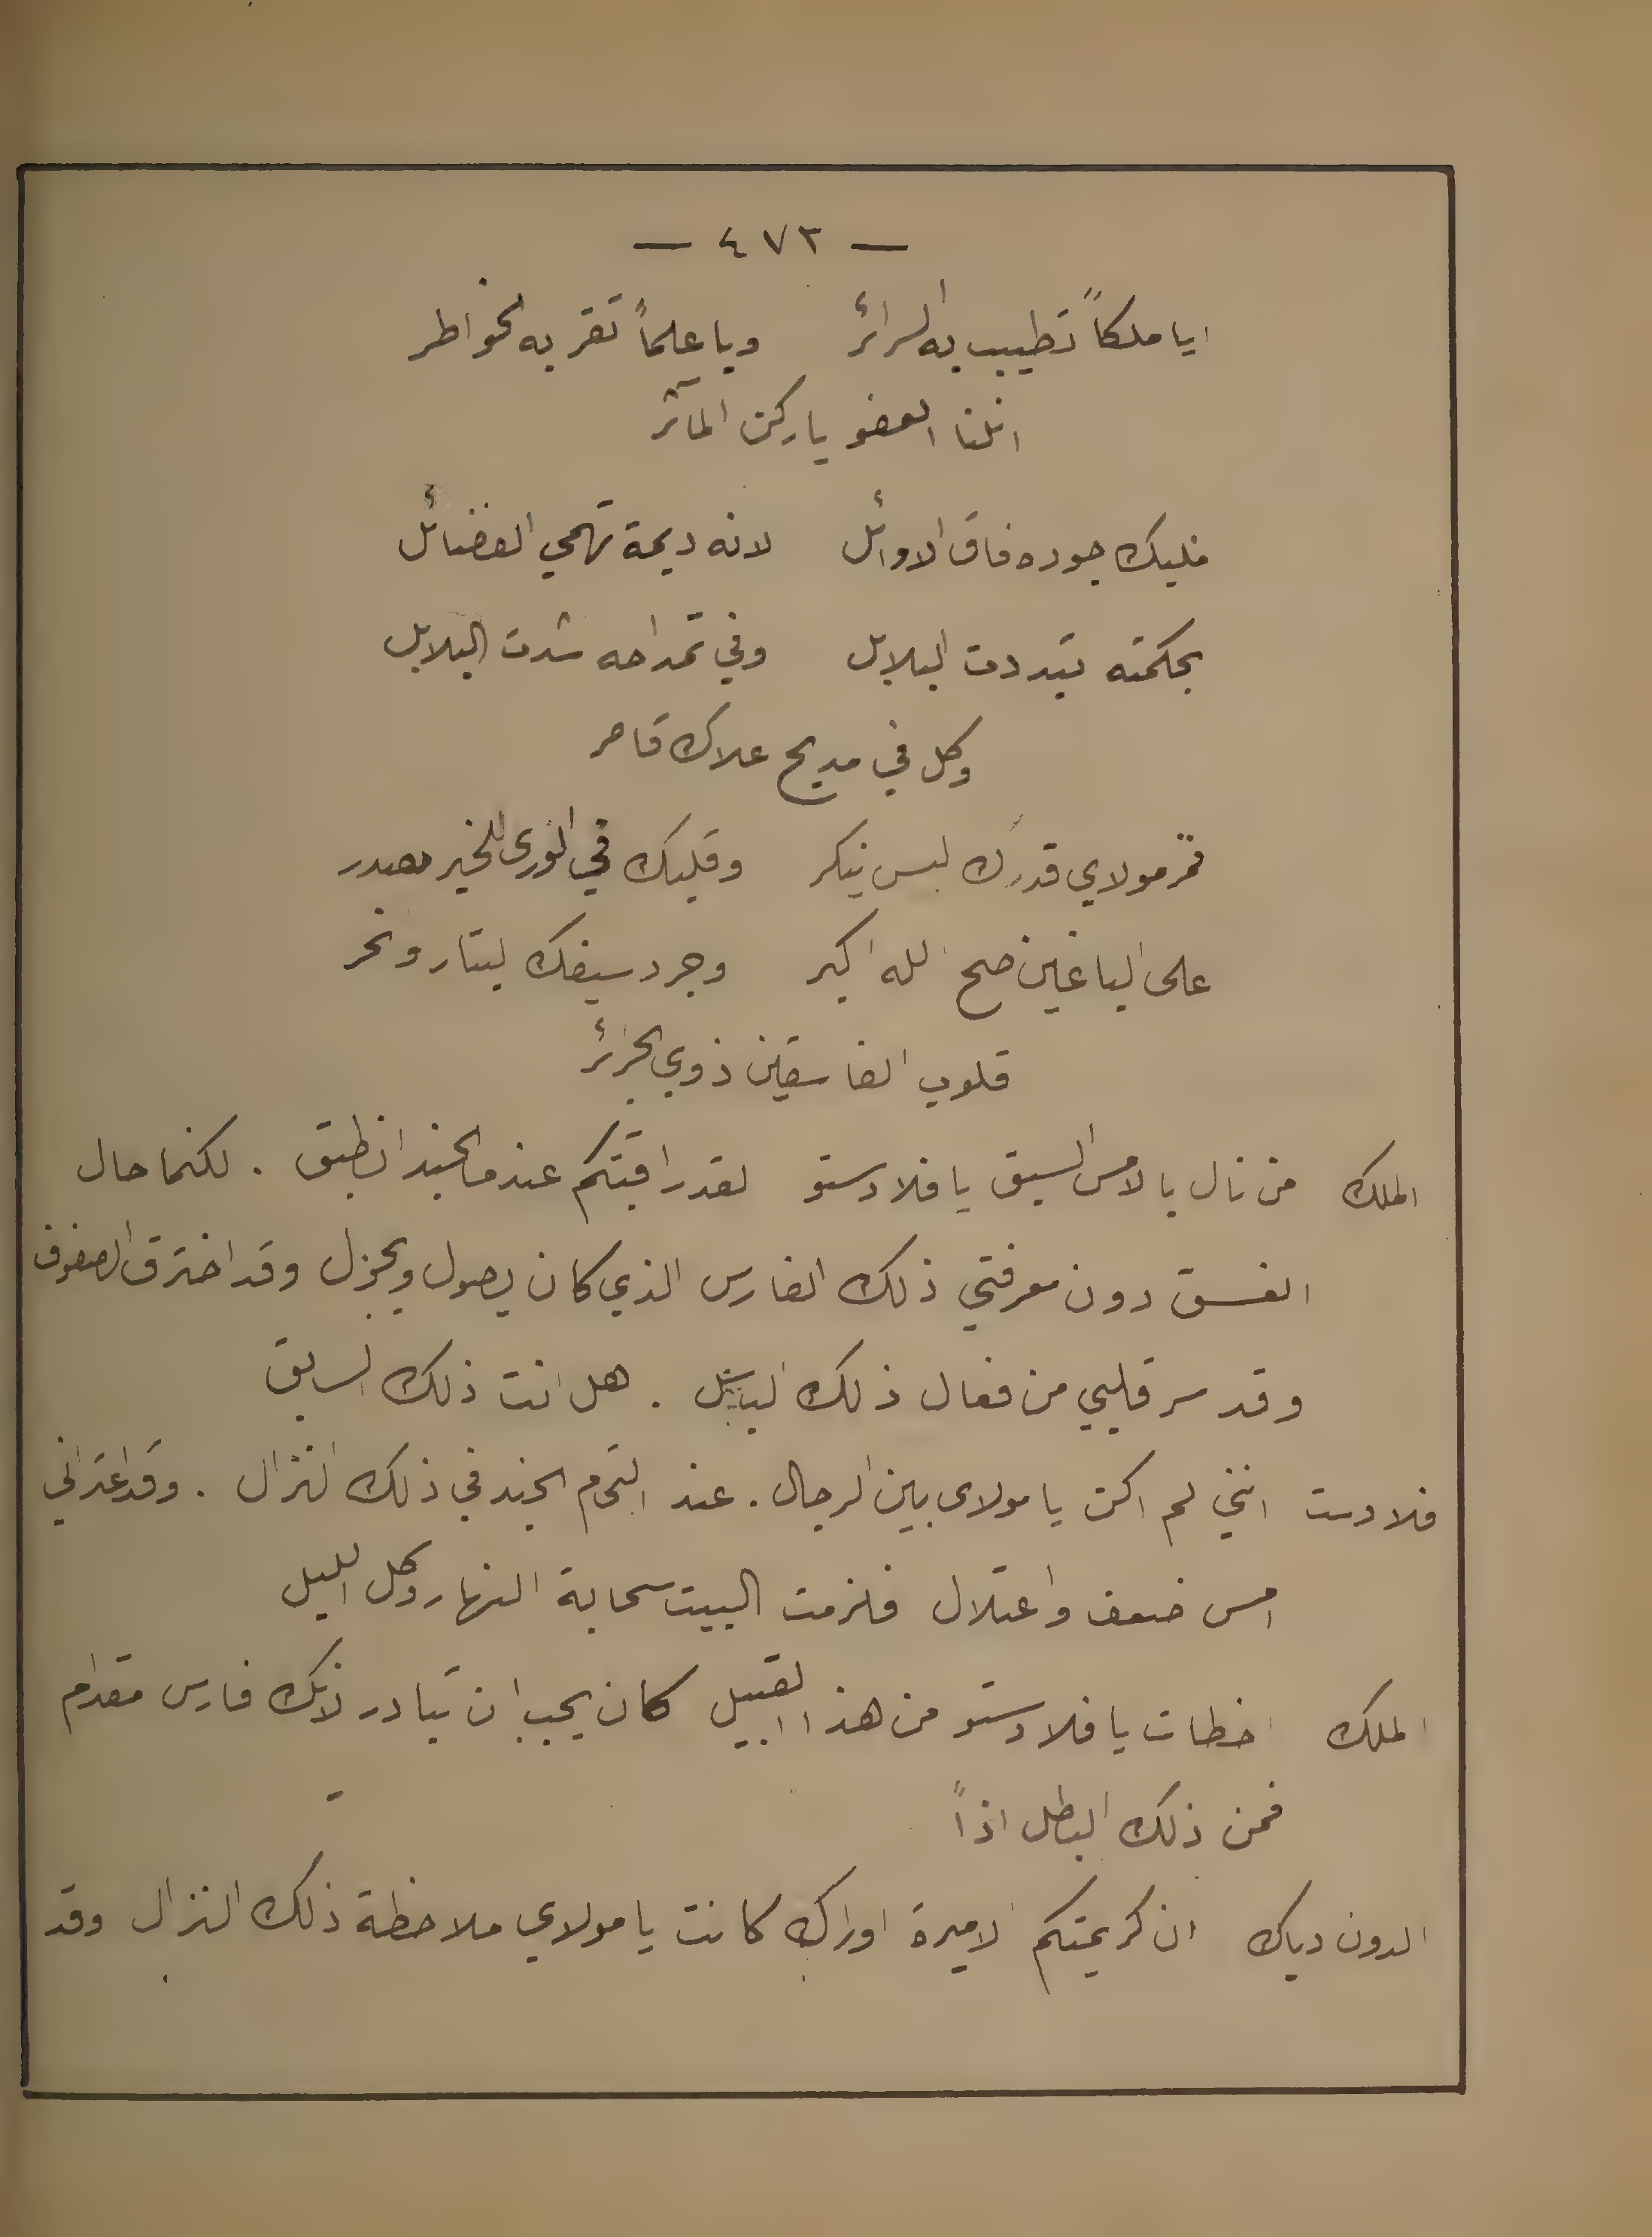 — ٤٧٣ —
ايا ملكاً تطيب به السرائر وياعلماً تقر به الخواطر
انلنا العفو ياركن المآثر
مليك جوده فاق الاوائل لانه ديمة تهمي الفضائل
بحكمته تبددت البلابل وفي تمداحه شدت البلابل
وكل في مديح علاك قاصر
فمر مولاي قدرك ليس ينكر وقلبك في الورى للخير مصدر
على الباغين صح الله اكبر وجرد سيفك البتار ونحر
قلوب الفاسقين ذوي الجرائر
الملك من نال بالامس السبق يا فلادستو لقد راقبتكم عندما الجند انطبق . لكنما حال
الغسق دون معرفتي ذلك الفارس الذي كان يصول ويجول وقد اخترق الصفوف
وقد سر قلبي من فعال ذلك الباسل . هل انت ذلك السابق
فلادست انني لم اكن يا مولاى بين الرجال . عند التحام الجند في ذلك النزال . وقد اعتراني
امس ضعف واعتلال فلزمت البيت سحابة النهار وكل الليل
الملك اخطات يا فلادستو من هذا القبيل كان يجب ان تبادر لانك فارس مقدام
فمن ذلك البطل اذاً
الدون دياك ان كريمتكم الاميرة اوراك كانت يا مولاي ملاحظة ذلك النزال وقد